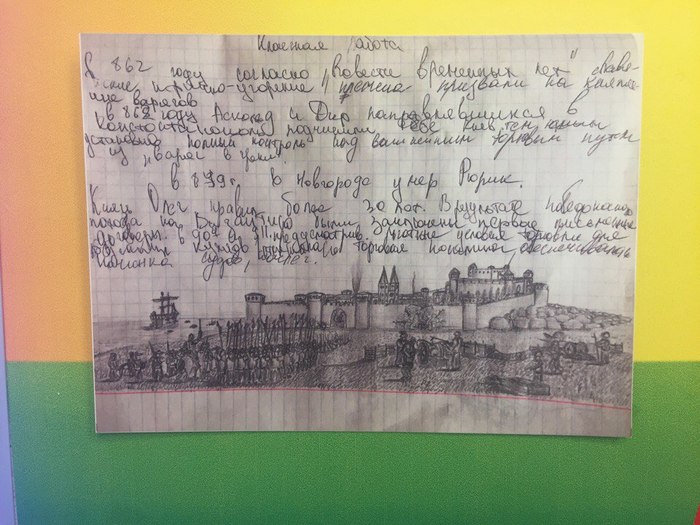 Классная работа
В 862 году согласно "Повести временных лет" славянские и финно-угорские племена призвали на княжение варягов
в 862 году Аскольд и Дир направлявшихся в
Константинополь подчинили себе Киев, тем самым
установив полный контроль над важнейшим торговым путем
из "варяг в греки".
в 879 г. в Новгороде умер Рюрик.
Князь Олег правил более 30 лет. В результате победоносного
похода на Византию были заключены первые письменные
договоры в 907 и 911, предусматрив льготные условия торговли для
купцов торговая пошлина, обеспечивалась
судов, ночлег.